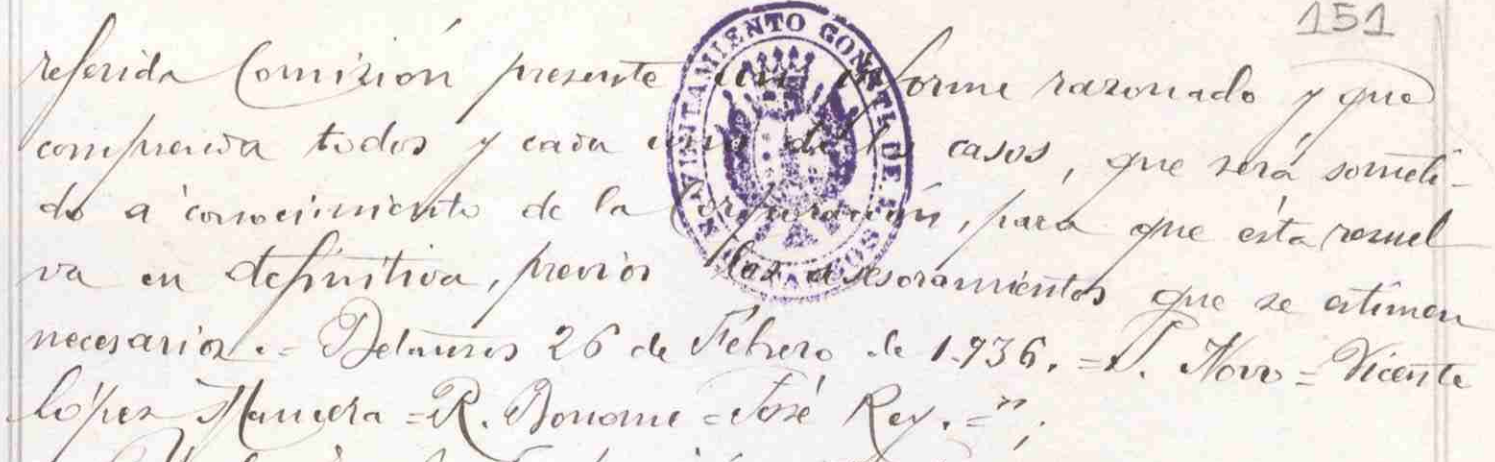 151
referida Comisión presente un informe razonado y que
comprenda todos y cada uno de los casos, que será someti-
do a conocimiento de la Corporación, para que ésta resuel
va en definitiva, previos los asesoramientos que se estimen
necesarios.= Betanzos 26 de Febrero de 1.936. = P. Novo = Vicente
López = R. Bonome = José Rey. =";
AYUNTAMIENTO CONSTL DE BETANZOS